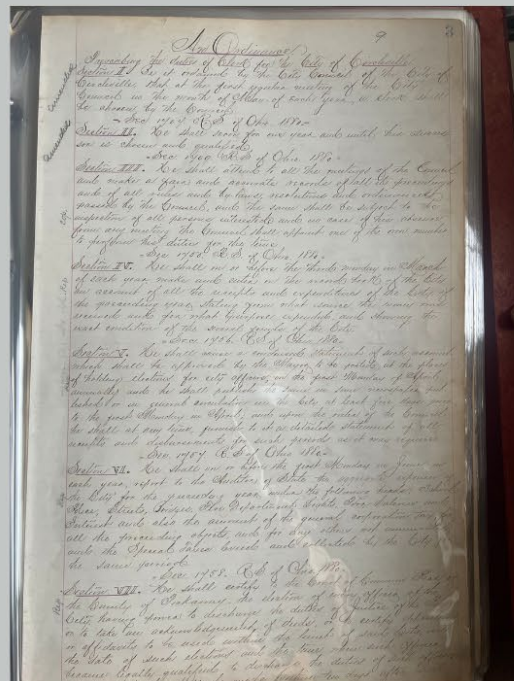 9 3
An Ordinance
Prescribing the duties of Clerk for the City of Circleville
Section I. Be it ordained by the City Council of the City of
Circleville that at the first regular meeting of the City
Council in the month of May of each year, a Clerk shall
be chosen by the Council
Sec 1764 R.S. of Ohio 1880.
Amended
Amended
Section II. He shall serve for one year and until his succes
sor is chosen and qualified.
Sec 1760 R.S. of Ohio 1880.
Section III. He shall attend to all the meetings of the Council
and make a fair and accurate record of all its proceedings
and of all rules and by-laws, resolutions and ordinances
passed by the Council, and the same shall be subject to the
inspection of all persons interested and in case of his absence
from any meeting the Council shall appoint one of its own number
to perform his duties for the time.
Sec 1755 R.S. of Ohio 1880.
Section IV. He shall on or before the third monday in March
of each year make and enter in the record book of the City
an account of all the receipts and expenditures of the City of
the preceeding year, stating from what source the money was
received and for what purpose expended, and showing the
exact condition of the several funds of the City.
Sec. 1756 R.S. of Ohio 1880.
Section V. He shall cause a condensed statement of such account
which shall be approved by the Mayor to be posted at the places
of holding elections for city officers, on the first Monday of April
annually and he shall publish the same in two newspapers
in general circulation in the City at least five days prior
to the first Monday in April, and upon the order of the Council
he shall at any time, furnish to it a detailed statement of all
receipts and disbursements for such periods as it may require
Sec. 1757 R.S. of Ohio 1880
Section VI. He shall on or before the first Monday in June in
each year, report to the Auditor of State the amounts expended
the City for the preceding year under the following heads:
Police, Streets, Bridges, Fire Department, Lights,
Interest and also the amount of the general
all the preceding objects and for any
and the Special Taxes levied and collected by the City
the same period.
Sec. 1758. R.S. of Ohio 1880
Section VII. He shall certify to the Court of Common Pleas of
the County of Pickaway the election of every officer
City having power to discharge the duties of Justice of the
or to take an acknowledgment of deeds, or to certify
or affidavits to be used without the limits of said City
the date of such election and the time when such officer
became legally qualified to discharge the duties of
within ten days after